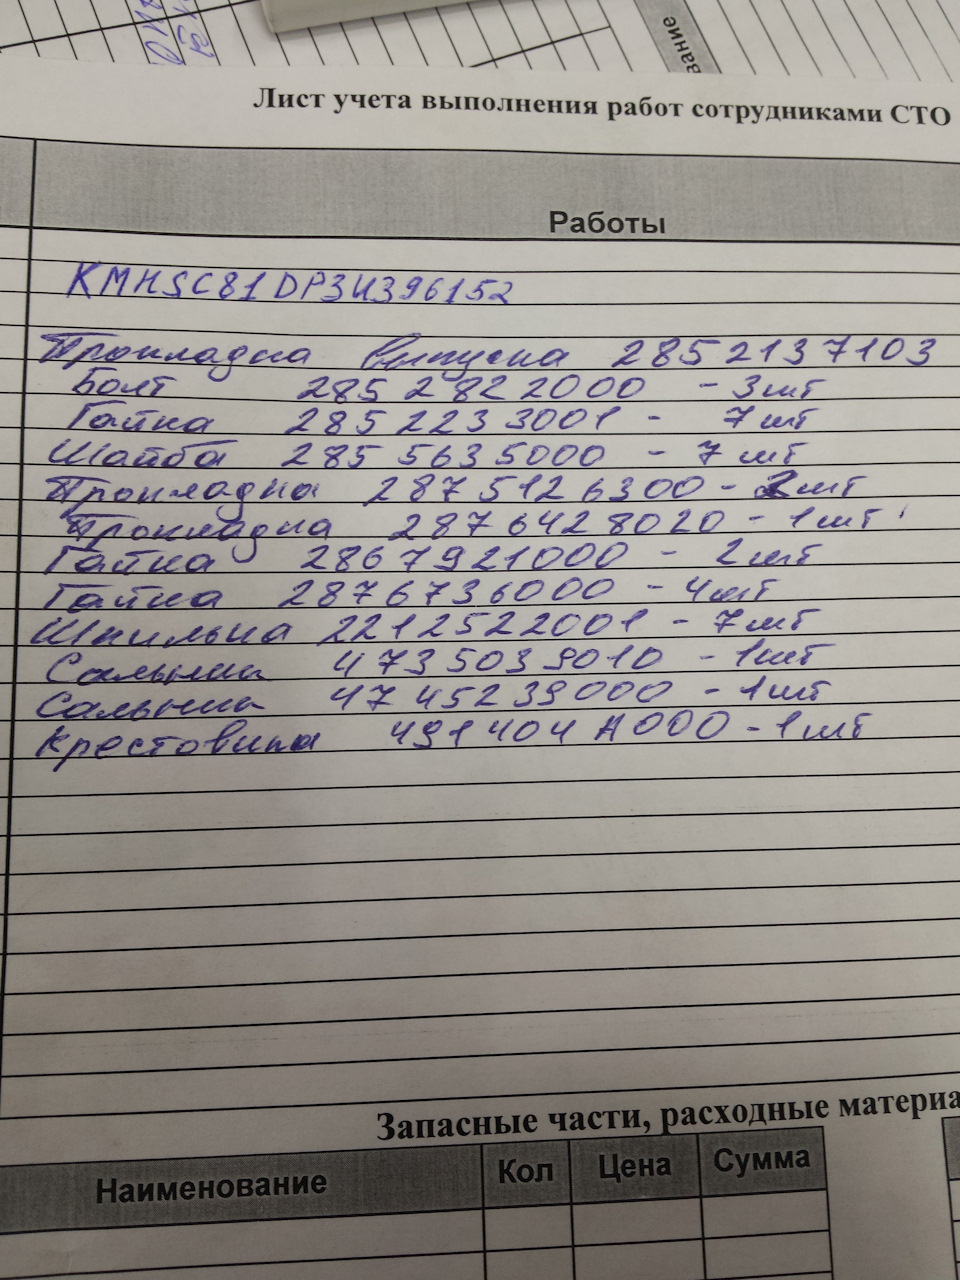 вание
Лист учета выполнения работ сотрудниками СТО
Работы
KMHSC81DP3U396152
Прокладка выпуска 2852137103
Болт 2852822000 - 3шт
Гайка 2852233001 - 7шт
Шайба 2855635000 - 7шт
Прокладка 2875126300 - 2шт
Прокладка 2876428020 - 1шт
Гайка 2867921000 - 2шт
Гайка 2876736000 - 4шт
Шпилька 2212522001 - 7шт
Сальник 4735039010 - 1шт
Сальник 4745239000 - 1шт
Крестовина 491404A000 - 1шт
Запасные части, расходные материа
Наименование Кол Цена Сумма